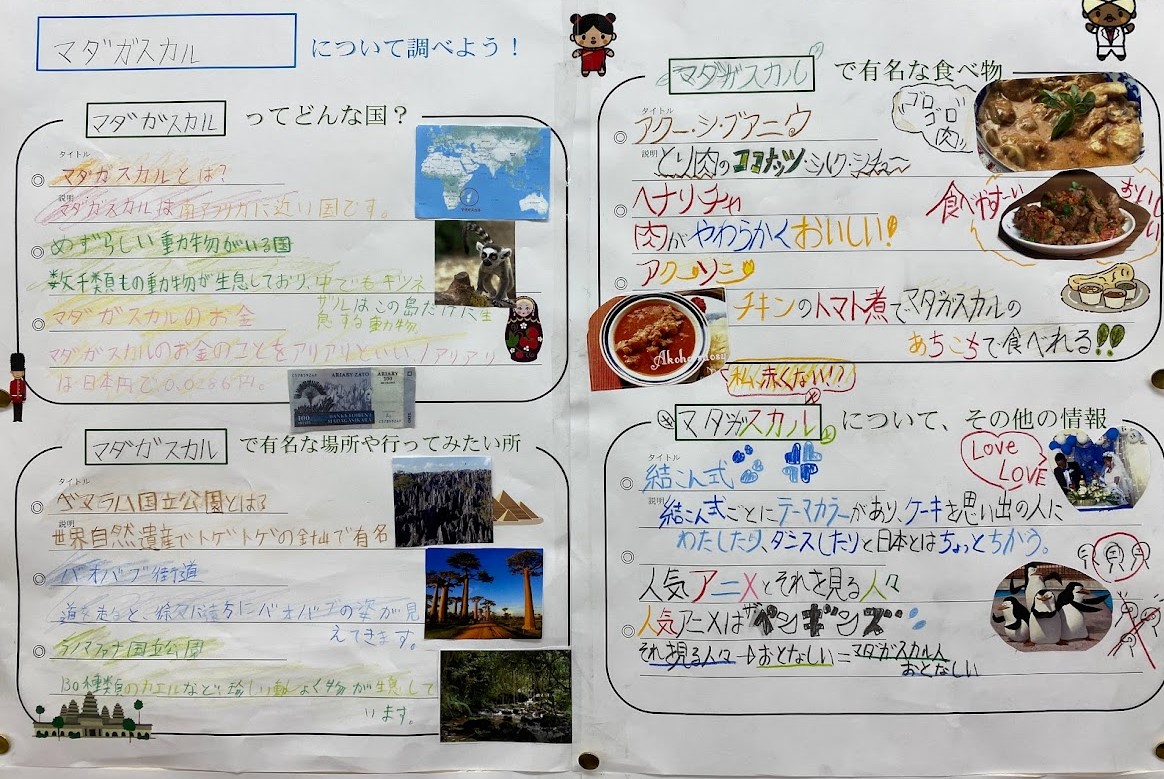 マダガスカル について調べよう！
マダガスカル ってどんな国？
タイトル
マダガスカルとは？
説明
マダガスカルは南アフリカに近い国です。
めずらしい動物がいる国
数千類もの動物が生息しており、中でもキツネ
ザルはこの島だけに生
息する動物。
マダガスカルのお金
マダガスカルのお金のことをアリアリといい1アリアリ
は日本円で0.0286円。
ARIARY ZATO
ARIARY
100
マダガスカル で有名な場所や行ってみたい所
タイトル
ベマラハ国立公園とは？
説明
世界自然遺産でトゲトゲの針山で有名
バオバブ街道
道を走ると、徐々に遠ちにバオバブの姿が見
えてきます。
ラノマファナ国立公園
130種類のカエルなど、珍しい動しょく物が生息して
います。
マダガスカル で有名な食べ物
タイトル
アクー・シ・ブアニウ
ゴロ
ゴロ
肉
説明
とり肉のココナッツ・シルク・シチュ〜
ヘナリチャ
食べやすーい
おいしい
肉がやわらかくおいしい！
アクーソシ
チキンのトマト煮でマダガスカルの
あちこちで食べれる！！
Akoho
私、赤くない！？
マダガスカル について、その他の情報
タイトル
結こん式
Love
LOVE
説明
結こん式ごとにテーマカラーがあり、ケーキを思い出の人に
わたしたり、ダンスしたりと日本とはちょっとちがう。
人気アニメとそれを見る人々
人気アニメは"ザペンギンズ"
それを見る人々→おとなしい＝マダガスカル人
おとなしい